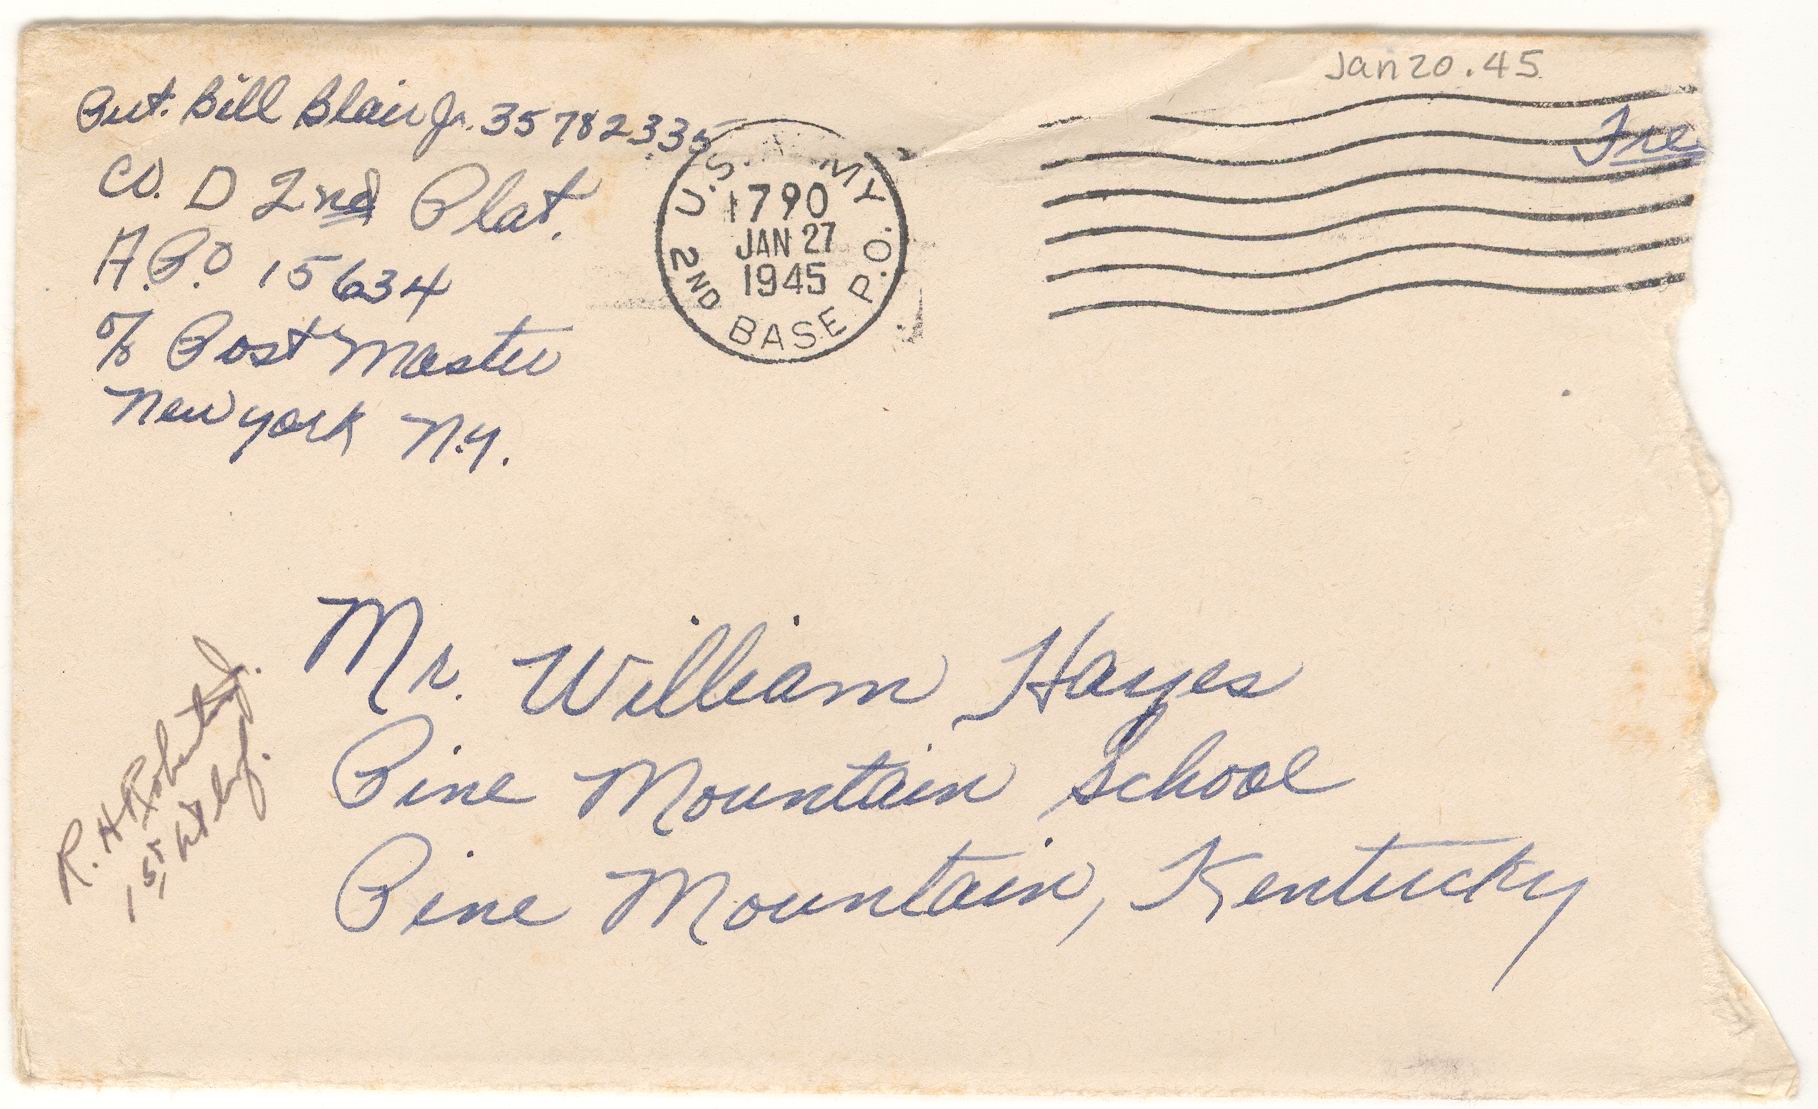 Jan 20.45
Pvt. Bill Blair Jr. 35782335
Co. D 2nd Plat.
A.P.O 15634
c/o Post Master
New york N.y.
U.S. ARMY
1790
JAN 27
1945
2ND BASE P.O.
Fre
Mr. William Hayes
Pine Mountain School
Pine Mountain, Kentucky
R. H Roberts Jr.
1st Lt Inf.